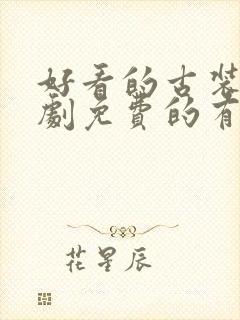 好看的古装
劇免費的有
花星辰